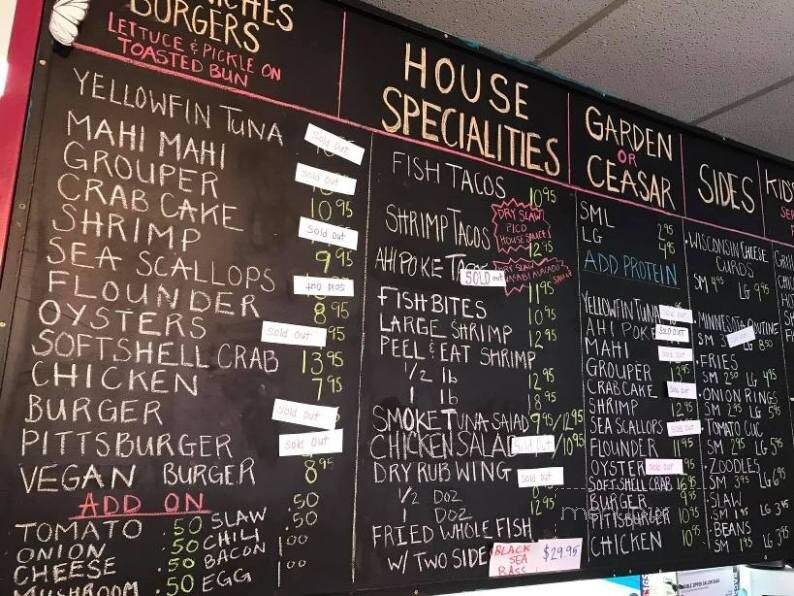 BURGERS
LETTUCE & PICKLE ON
TOASTED BUN
YELLOWFIN TUNA Sold out
MAHI MAHI Sold out
GROUPER 10 95
CRAB CAKE Sold out
SHRIMP 9 95
SEA SCALLOPS Sold out
FLOUNDER 8 95
OYSTERS Sold out 95
SOFTSHELL CRAB 13 95
CHICKEN 7 95
BURGER Sold out
PITTSBURGER Sold out
VEGAN BURGER 8
ADD ON
TOMATO .50 SLAW .50
ONION .50 CHILI .50
CHEESE .50 BACON 1.00
MUSHROOM .50 EGG 1.00
HOUSE
SPECIALITIES
FISH TACOS 10 95
SHRIMP TACOS DRY SLAW PICO HOUSE SAUCE 12 95
AHI POKE SOLD out 11 95
FISH BITES 10 95
LARGE SHRIMP 12 95
PEEL & EAT SHRIMP
1/2 lb 12 95
1 lb 18 95
SMOKE TUNA SALAD 9 95/12 95
CHICKEN SALAD Sold out /10 95
DRY RUB WING Sold out
1/2 DOZ
1 DOZ 12 95
FRIED WHOLE FISH
W/ TWO SIDE BLACK SEA BASS $29.95
GARDEN
OR
CEASAR
SML 2 95
LG 4 95
ADD PROTEIN
YELLOWFIN TUNA Sold out
AHI POKE SOLD out
MAHI Sold out
GROUPER 13 95
CRABCAKE Sold out
SHRIMP 12 95
SEA SCALLOPS Sold out
FLOUNDER 11 95
OYSTER Sold out 95
SOFTSHELL CRAB 16 95
BURGER 9 95
PITTSBURGER 10 95
CHICKEN 10 95
SIDES
WISCONSIN CHEESE
CURDS
SM 4 95 LG 9 95
MINNESOTA POUTINE
SM Sold out 8 50
FRIES
SM 2 50 LG 4 95
ONION RINGS
SM 2 95 LG 5 95
TOMATO CUC
SM 2 95 LG 5 95
ZOODLES
SM 3 95 LG 6 95
SLAW
SM 1 95 LG 3 95
BEANS
SM 1 95 LG 3 95